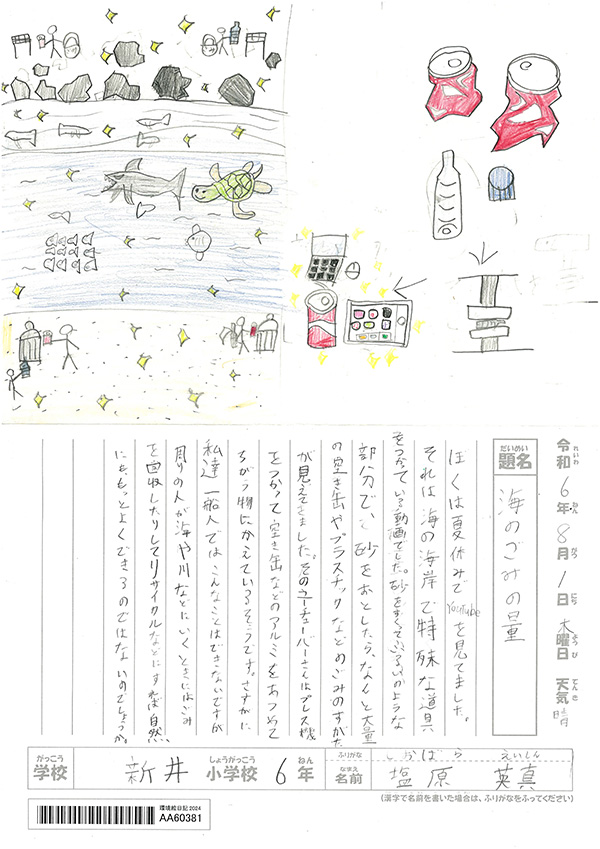 令和6年8月1日 木曜日 天気 晴
れいわ ねん がつ にち ようび てんき
だいめい
題名 海のごみの量
ぼくは夏休みでYouTubeを見てました。
それは海の海岸で特殊な道具
をつかっている動画でした。砂をすくて、ふるいのような
部分で、砂をおとしたら、なんと大量
の空き缶やプラスチックなどのごみのすがた
が見えてきました。そのユーチューバーさんはプレス機
をつかって空き缶などのアルミをあつめて
ちがう物にかえているそうです。さすがに
私達一船人ではこんなことはできないですが
周りの人が海や川などにいくときにはごみ
を回収したりしてリサイクルなどにすれば自然
にも、もっとよくできるのではないのでしょうか。
がっこう しょうがっこう ねん
学校 新井 小学校 6年
ふりがな しおばら えいしん
なまえ
名前 塩原 英真
(漢字で名前を書いた場合は、ふりがなをふってください)
環境絵日記2024
AA60381